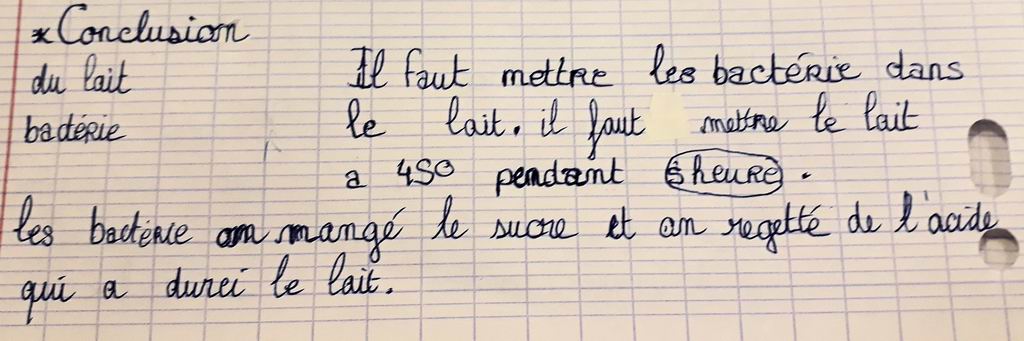 * Conclusion
du lait Il faut mettre les bactérie dans
bactérie le lait. il faut mettre le lait
a 450 pendant 5 heure.
les bactérie on mangé le sucre et on regetté de l'acide
qui a durci le lait.